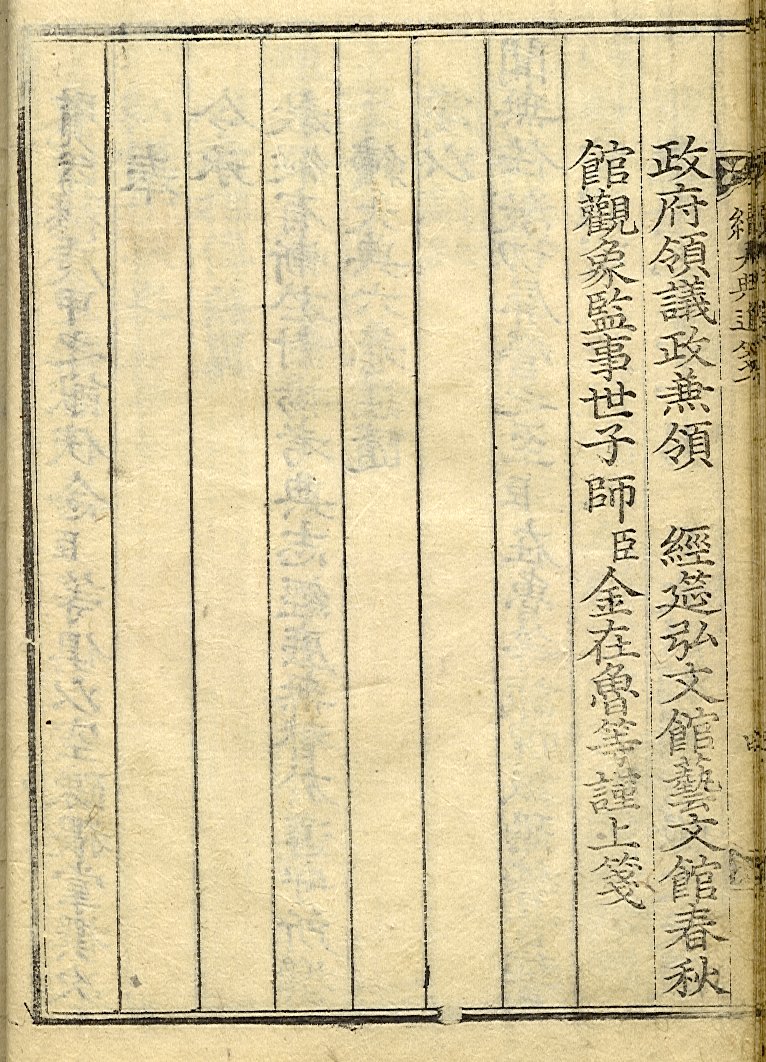 政府領議政兼領　經筵弘文館藝文館春秋
館觀象監事世子師臣金在魯等謹上箋
續大典進箋